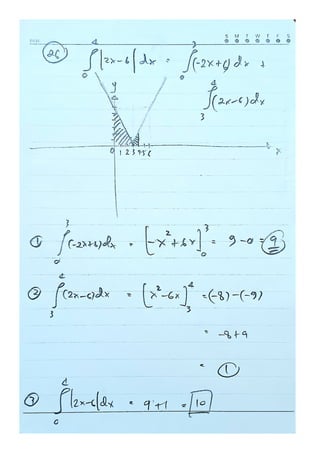 S M T W T F S
(26) ∫₀⁴ |2x-6| dx = ∫₀³ (-2x+6) dx +
∫₃⁴ (2x-6) dx
y
0 1 2 3 4 5 6 x
① ∫₀³ (-2x+6) dx = [-x²+6x]₀³ = 9-0 = 9
② ∫₃⁴ (2x-6) dx = [x²-6x]₃⁴ = (-8)-(-9)
= -8+9
= 1
③ ∫₀⁴ |2x-6| dx = 9+1 = 10